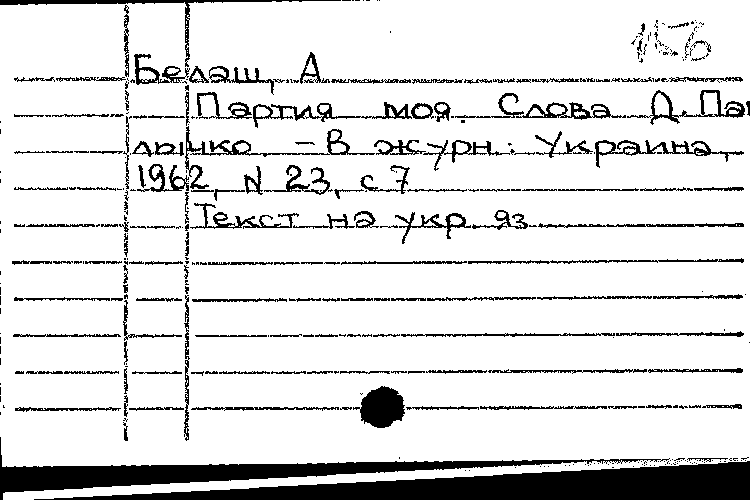 Белаш, А
Партия моя. Слова Д. Пав
лычко. – В журн.: Украина,
1962, N 23, с 7
Текст на укр. яз